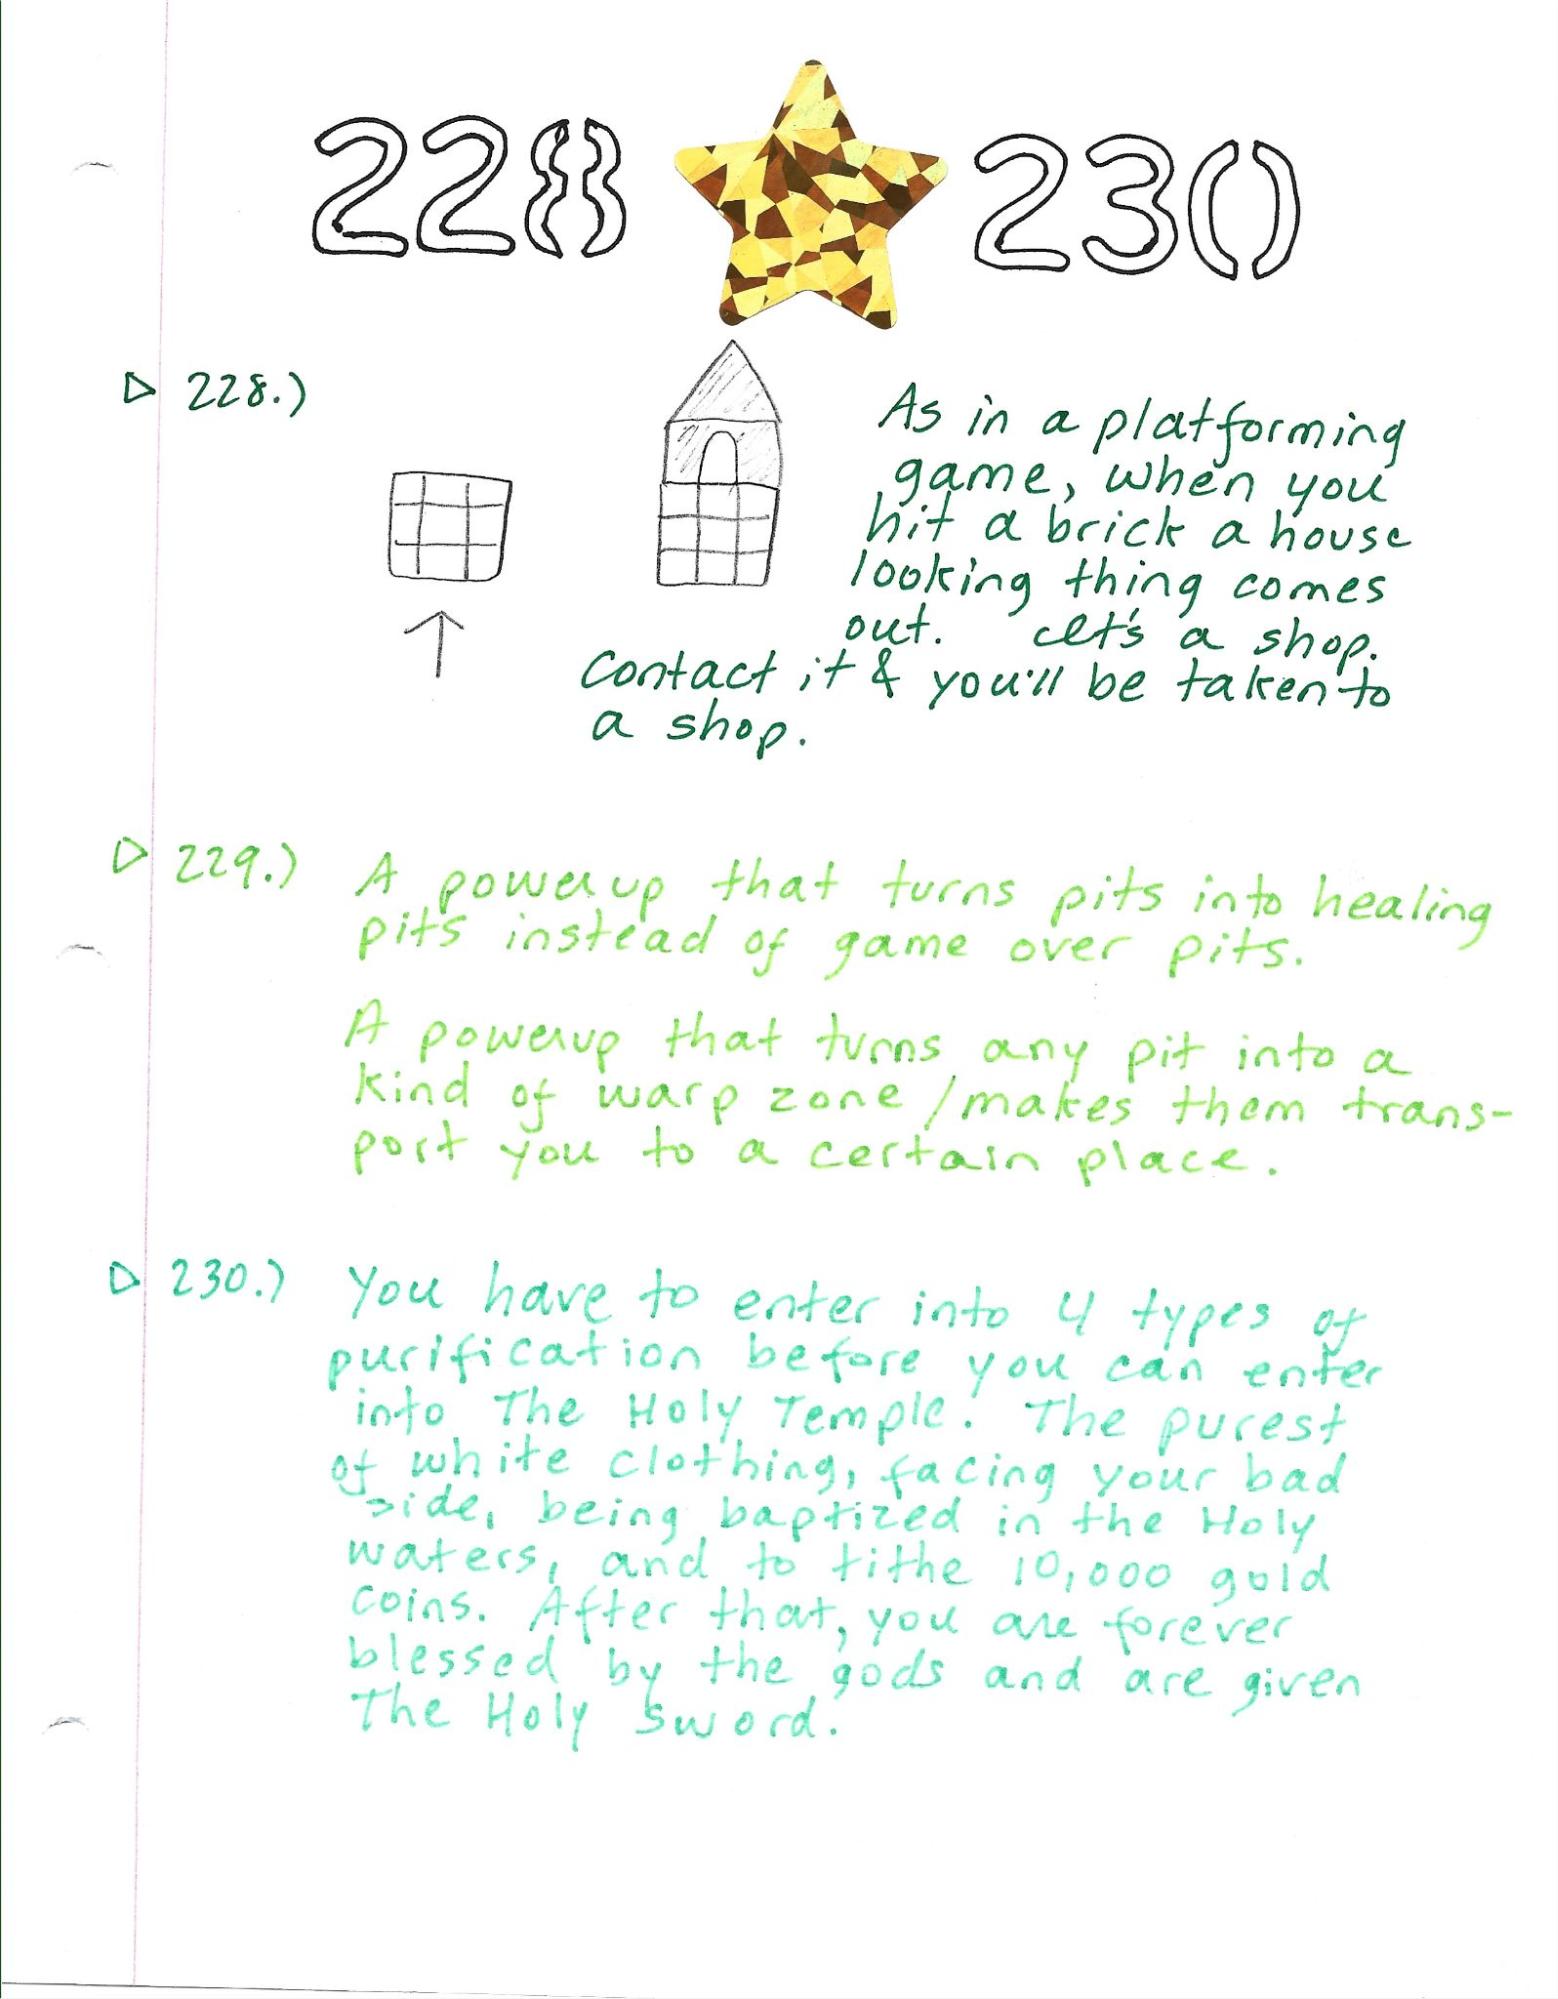 228 230
228.)
As in a platforming
game, when you
hit a brick a house
looking thing comes
out. It's a shop.
Contact it & you'll be taken to
a shop.
229.) A powerup that turns pits into healing
pits instead of game over pits.
A powerup that turns any pit into a
kind of warp zone/makes them trans-
port you to a certain place.
230.) You have to enter into 4 types of
purification before you can enter
into The Holy Temple. The purest
of white clothing, facing your bad
side, being baptized in the Holy
waters, and to tithe 10,000 gold
coins. After that, you are forever
blessed by the gods and are given
The Holy Sword.